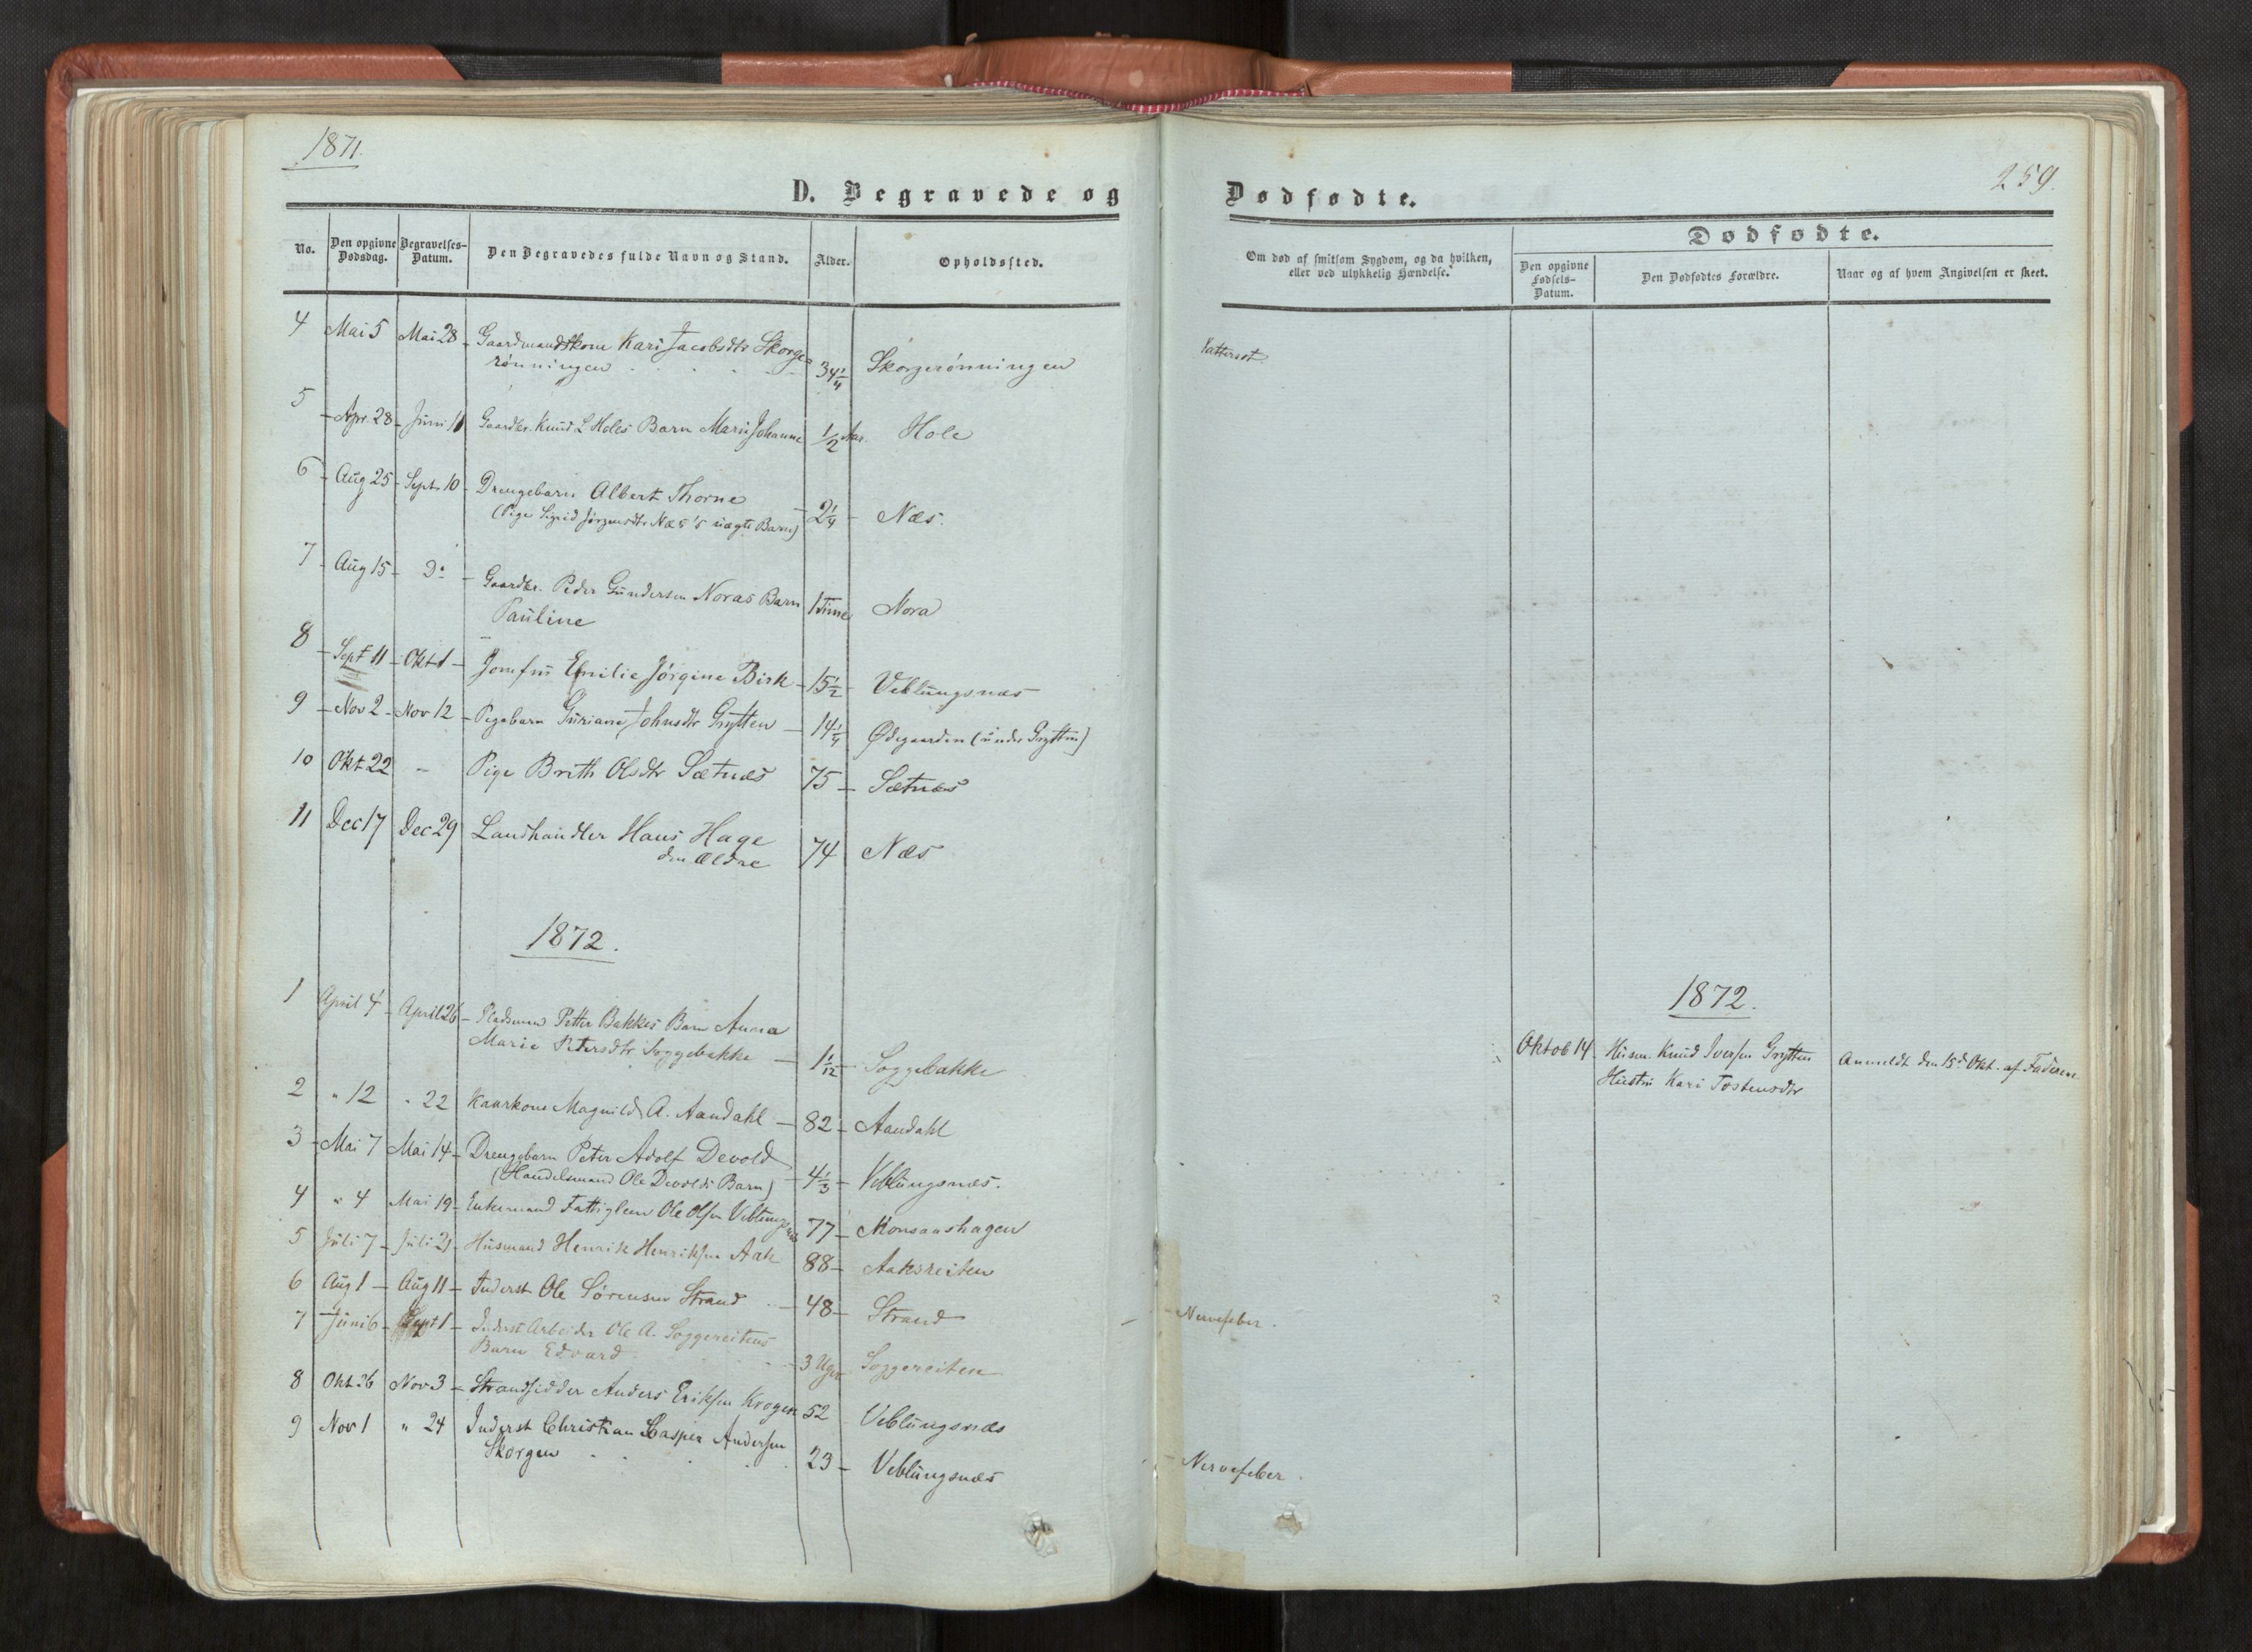 1871.
D. Begravede og
No.
Den opgivne Dødsdag.
Begravelses-Datum.
Den Begravedes fulde Navn og Stand.
Alder.
Opholdssted.
4 Mai 5 Mai 28 Gaardmandskone Kari Jacobsdtr Skorge-
rønningen 34 1/4 Skorgerønningen
5 Apr. 28 Juni 11 Gaardbr. Knud L Holes Barn Marie Johanne 1/2 Aar. Hole
6 Aug 25 Sept. 10 Drengebarn Albert Thorne
(Pige Sigrid Jørgensdtr Næs's uægte Barn) 2 1/4 Næs.
7 Aug 15 Do Gaardbr. Peder Gundersen Noras Barn 1 Time Nora
Pauline
8 Sept 11 Okt 1 Jomfru Emilie Jørgine Birk 15 1/2 Veblungsnæs
9 Nov 2 Nov 12 Pigebarn Guriane Johnsdtr Grytten 14 1/4 Ødegaarden (under Grytten)
10 Okt 22 - Pige Brith Olsdtr Sætnæs 75 Sætnæs
11 Dec 17 Dec 29 Landhandler Hans Hage
den ældre 74 Næs
1872.
1 April 4 April 26 Pladsmand Petter Bakkes Barn Anna
Marie Petersdtr Soggebakke 1 1/12 Soggebakke
2 " 12 " 22 Kaarkone Magnild A. Aandahl 82 Aandahl
3 Mai 7 Mai 14 Drengebarn Peter Adolf Devold
(Handelsmand Ole Devolds Barn) 4 1/3 Veblungsnæs.
4 " 4 Mai 19 Enkemand Fattiglem Ole Olsen Veblungsnæs 77 Monsaashagen
5 Juli 7 Juli 21 Husmand Henrik Henriksen Aak 88 Aaksreiten
6 Aug 1 Aug 11 Inderst Ole Sørensen Strand 48 Strand
7 Juni 6 Sept 1 Inderst Arbeider Ole A. Soggereitens
Barn Edvard 3 Uger Soggereiten
8 Okt 26 Nov 3 Strandsidder Anders Eriksen Krogen 52 Veblungsnæs
9 Nov 1 " 24 Inderst Christian Casper Andersen
Skorgen 23 Veblungsnæs
259.
Dødfødte.
Om død af smitsom Sygdom, og da hvilken, eller ved ulykkelig Hændelse.
Dødfødte.
Den opgivne Fødsels-Datum.
Den Dødfødtes Forældre.
Naar og af hvem Angivelsen er skeet.
1872.
Oktob 14 Husm. Knud Iversen Grytten Anmeldt den 15d Okt. af Faderen
Hustru Kari Tostensdtr
Nervefeber.
Nervefeber.